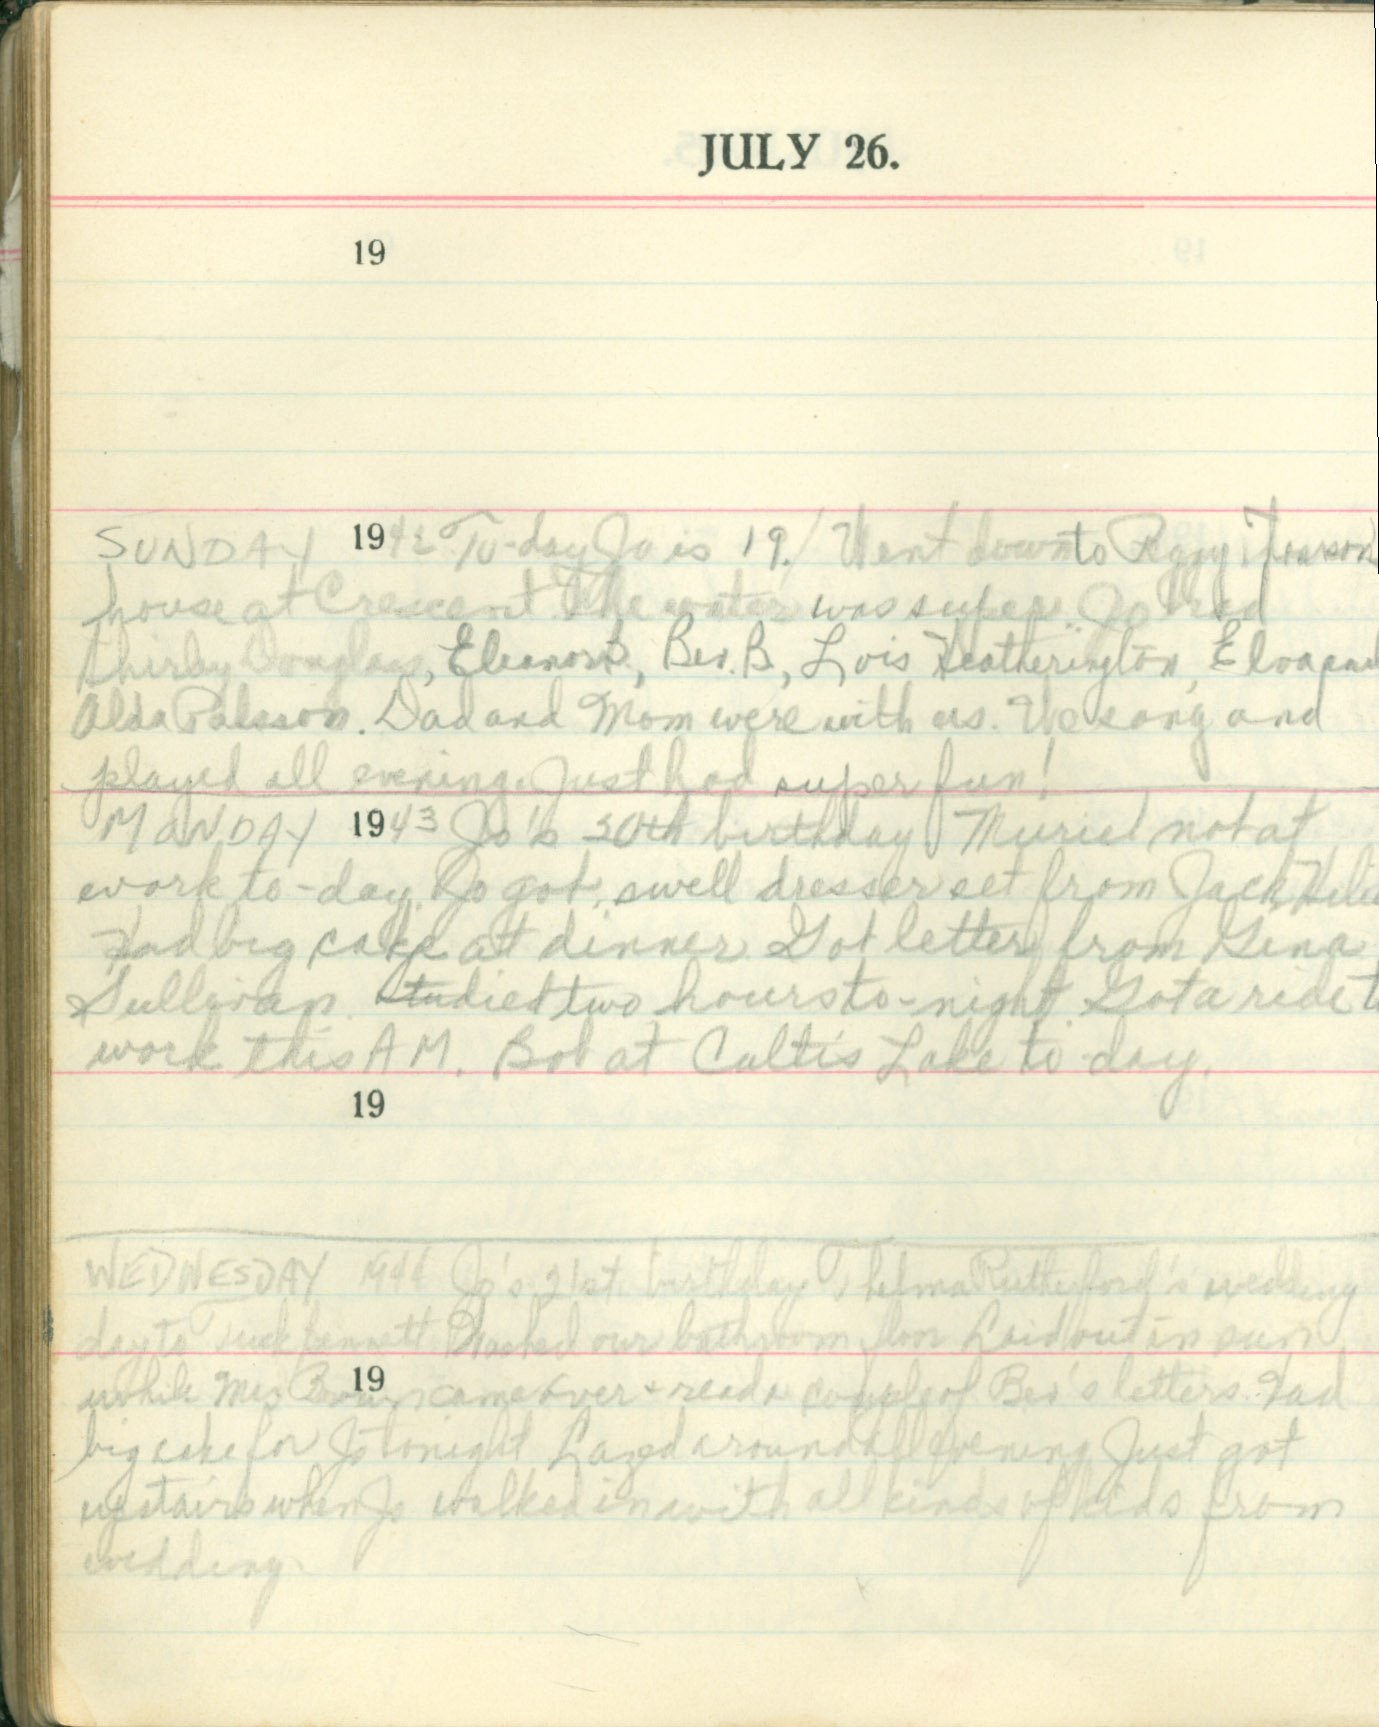 JULY 26.
19
SUNDAY 1942 To-day Jo is 19! Went down to Peggy
house at Crescent. The water was super. Jo had
Shirley Douglass, Eleanor B, Bev. B, Lois Heatherington, Eloa and
Alda Palsson. Dad and Mom were with us. We sang and
played all evening. Just had super fun!
MONDAY 1943 Jo's 20th birthday Muriel not at
work to-day. Jo got swell dresser set from Jack
Had big cake at dinner. Got letter from Gena
Sullivan. Studied two hours to-night. Got a ride to
work this A M. Bob at Cultis Lake to-day.
19
WEDNESDAY 1944 Jo's 21st birthday Thelma Rutherford's wedding
day to Bennett Washed our bathroom floor Laid out in sun
while Mrs Brown came over + read a couple of Bev's letters. Had
19
big cake for Jo tonight Lazed around all evening Just got
upstairs when Jo walked in with all kinds of kids from
wedding.